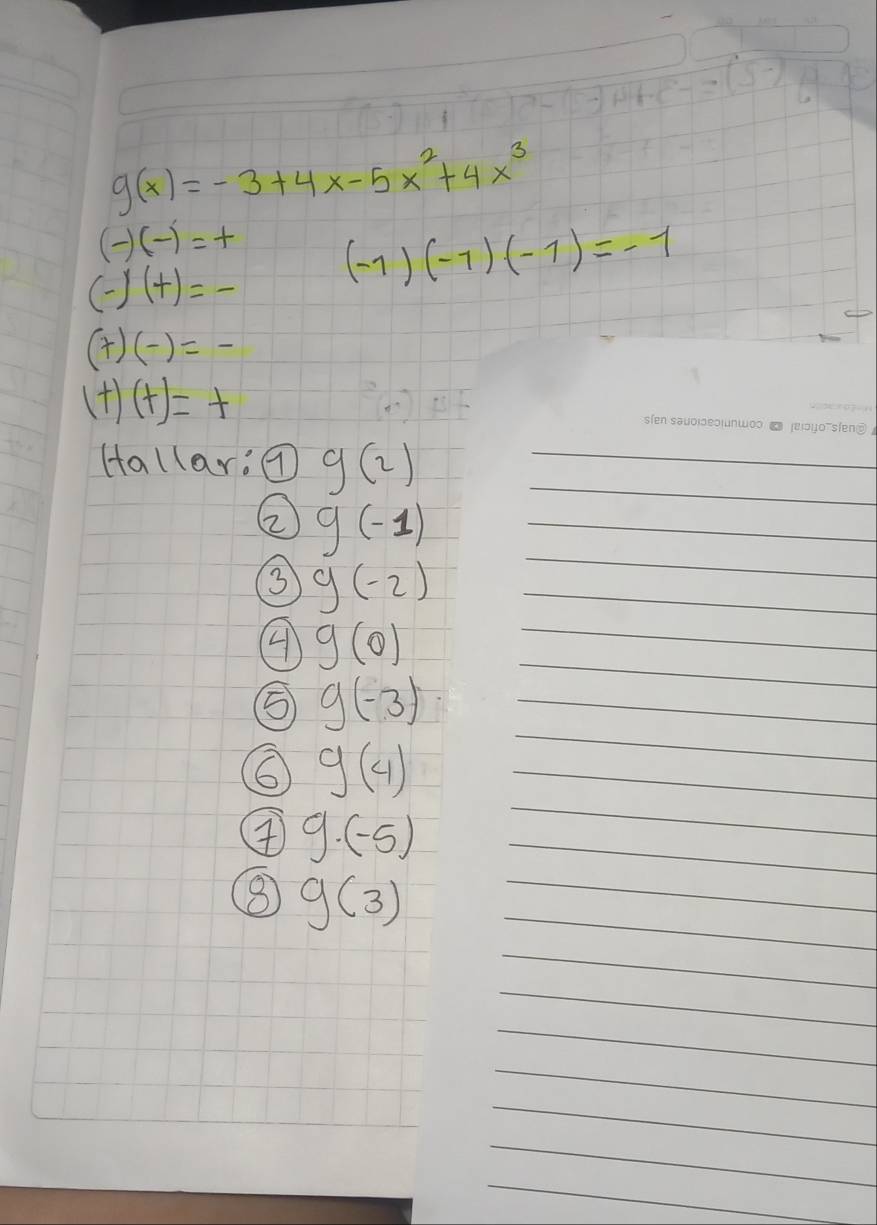 g(x) = -3+4x-5x²+4x³
(-)(-) = +
(-)(+) = -
(-1)(-1)(-1) = -1
(+)(-) = -
(+)(+) = +
@uajs_oficial comunicaciones uajs
Hallar: ① g(2)
② g(-1)
③ g(-2)
④ g(0)
⑤ g(-3)
⑥ g(4)
⑦ g.(-5)
⑧ g(3)